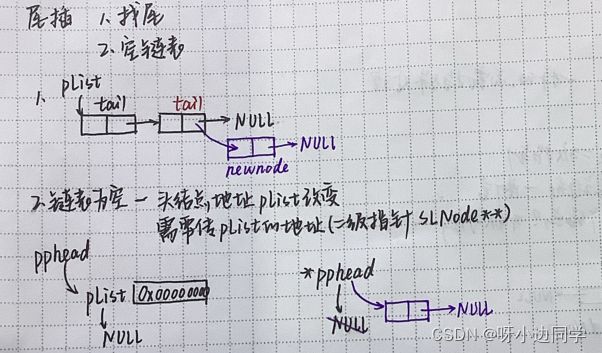 尾插 1、找尾
2、空链表
1、 pList
tail tail
NULL
NULL
newnode
2、链表为空 — 头结点地址pList改变
需要传pList的地址(二级指针 SLNode**)
pphead
pList 0x00000000
NULL
*pphead
NULL
NULL
CSDN @呀小边同学